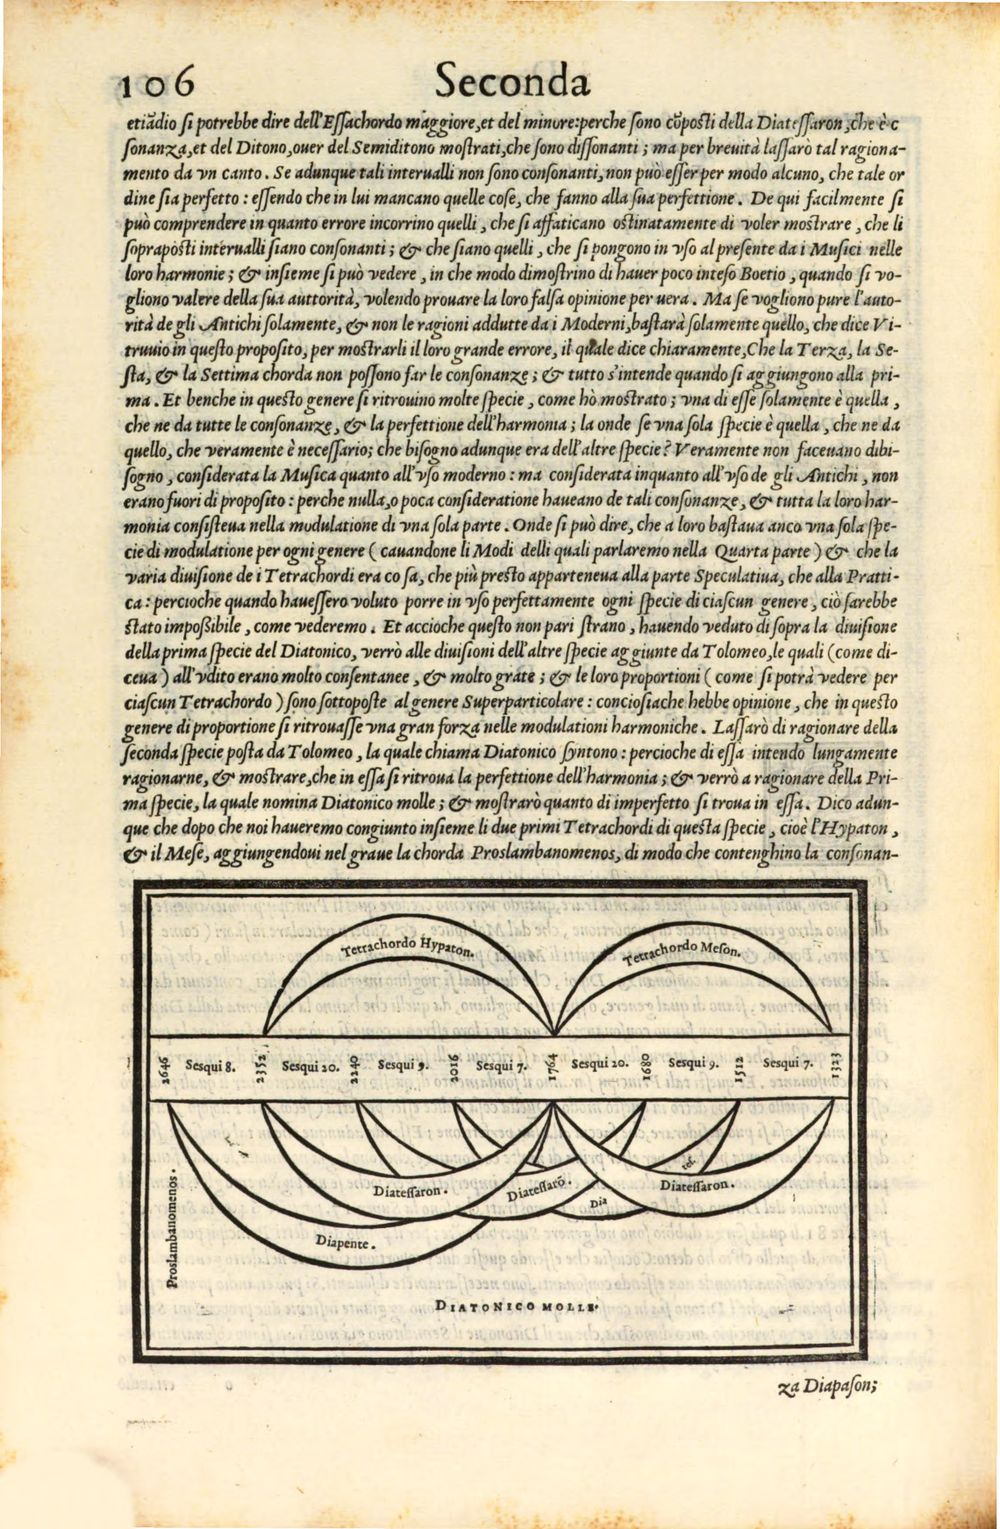 106 Seconda
etiādio ſi potrebbe dire dell'Eſſachordo maggiore,et del minore:perche ſono cōpoſti della Diateſſaron,che è c
ſonanza,et del Ditono,ouer del Semiditono moſtrati,che ſono diſſonanti; ma per breuità laſſarò tal ragiona-
mento da vn canto. Se adunque tali interualli non ſono conſonanti, non può eſſer per modo alcuno, che tale or
dine ſia perfetto: eſſendo che in lui mancano quelle coſe, che fanno alla ſua perfettione. De qui facilmente ſi
può comprendere in quanto errore incorrino quelli, che ſi affaticano oſtinatamente di voler moſtrare, che li
ſoprapoſti interualli ſiano conſonanti; & che ſiano quelli, che ſi pongono in vſo al preſente da i Muſici nelle
loro harmonie; & inſieme ſi può vedere, in che modo dimoſtrino di hauer poco inteſo Boetio, quando ſi vo-
gliono valere della ſua auttorità, volendo prouare la loro falſa opinione per uera. Ma ſe vogliono pure l'auto-
rità de gli Antichi ſolamente, & non le ragioni addutte da i Moderni,baſtarà ſolamente quello, che dice Vi-
truuio in queſto propoſito, per moſtrarli il loro grande errore, il quale dice chiaramente,Che la Terza, la Se-
ſta, & la Settima chorda non poſſono far le conſonanze; & tutto s'intende quando ſi aggiungono alla pri-
ma. Et benche in queſto genere ſi ritrouino molte ſpecie, come hò moſtrato; vna di eſſe ſolamente è quella,
che ne da tutte le conſonanze, & la perfettione dell'harmonia; la onde ſe vna ſola ſpecie è quella, che ne da
quello, che veramente è neceſſario; che biſogno adunque era dell'altre ſpecie? Veramente non faceuano dibi-
ſogno, conſiderata la Muſica quanto all'vſo moderno: ma conſiderata inquanto all'vſo de gli Antichi, non
erano fuori di propoſito: perche nulla,o poca conſideratione haueano de tali conſonanze, & tutta la loro har-
monia conſiſteua nella modulatione di vna ſola parte. Onde ſi può dire, che a loro baſtaua anco vna ſola ſpe-
cie di modulatione per ogni genere (cauandone li Modi delli quali parlaremo nella Quarta parte) & che la
varia diuiſione de i Tetrachordi era coſa, che più preſto apparteneua alla parte Speculatiua, che alla Pratti-
ca: percioche quando haueſſero voluto porre in vſo perfettamente ogni ſpecie di ciaſcun genere, ciò ſarebbe
ſtato impoßibile, come vederemo. Et accioche queſto non pari ſtrano, hauendo veduto di ſopra la diuiſione
della prima ſpecie del Diatonico, verrò alle diuiſioni dell'altre ſpecie aggiunte da Tolomeo,le quali (come di-
ceua) all'vdito erano molto conſentanee, & molto grate; & le loro proportioni (come ſi potrà vedere per
ciaſcun Tetrachordo) ſono ſottopoſte al genere Superparticolare: concioſiache hebbe opinione, che in queſto
genere di proportione ſi ritrouaſſe vna gran forza nelle modulationi harmoniche. Laſſarò di ragionare della
ſeconda ſpecie poſta da Tolomeo, la quale chiama Diatonico ſyntono: percioche di eſſa intendo lungamente
ragionarne, & moſtrare,che in eſſa ſi ritroua la perfettione dell'harmonia; & verrò a ragionare della Pri-
ma ſpecie, la quale nomina Diatonico molle; & moſtrarò quanto di imperfetto ſi troua in eſſa. Dico adun-
que che dopo che noi haueremo congiunto inſieme li due primi Tetrachordi di queſta ſpecie, cioè l'Hypaton,
& il Meſe, aggiungendoui nel graue la chorda Proslambanomenos, di modo che contenghino la conſonan-
Tetrachordo Hypaton. Tetrachordo Meſon.
2646 Sesqui 8. 2352 Sesqui 20. 2240 Sesqui 9. 2016 Sesqui 7. 1764 Sesqui 20. 1680 Sesqui 9. 1512 Sesqui 7. 1323
Proslambanomenos.
Diateſſaron. Diateſſarō. Dia teſ. Diateſſaron.
Diapente.
DIATONICO MOLLE.
za Diapaſon;